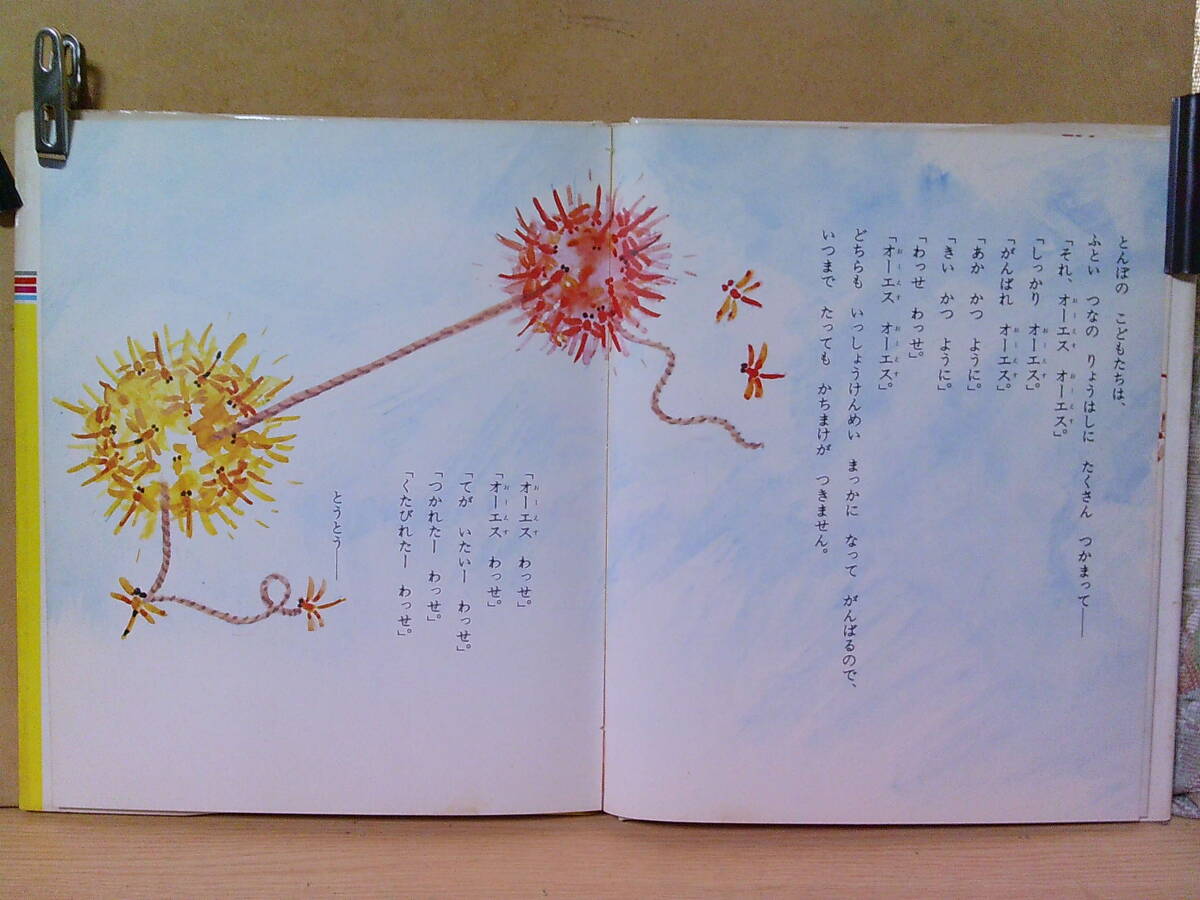 とんぼの こどもたちは、
ふとい つなの りょうはしに たくさん つかまって――
「それ、オーエス オーエス。
「しっかり オーエス。」
「がんばれ オーエス。」
「あか かつ ように。」
「きい かつ ように。」
「わっせ わっせ。」
「オーエス オーエス。」
どちらも いっしょうけんめい まっかに なって がんばるので、
いつまで たっても かちまけが つきません。
「オーエス わっせ。」
「オーエス わっせ。」
「てが いたいー わっせ。」
「つかれたー わっせ。」
「くたびれたー わっせ。」
とうとう――